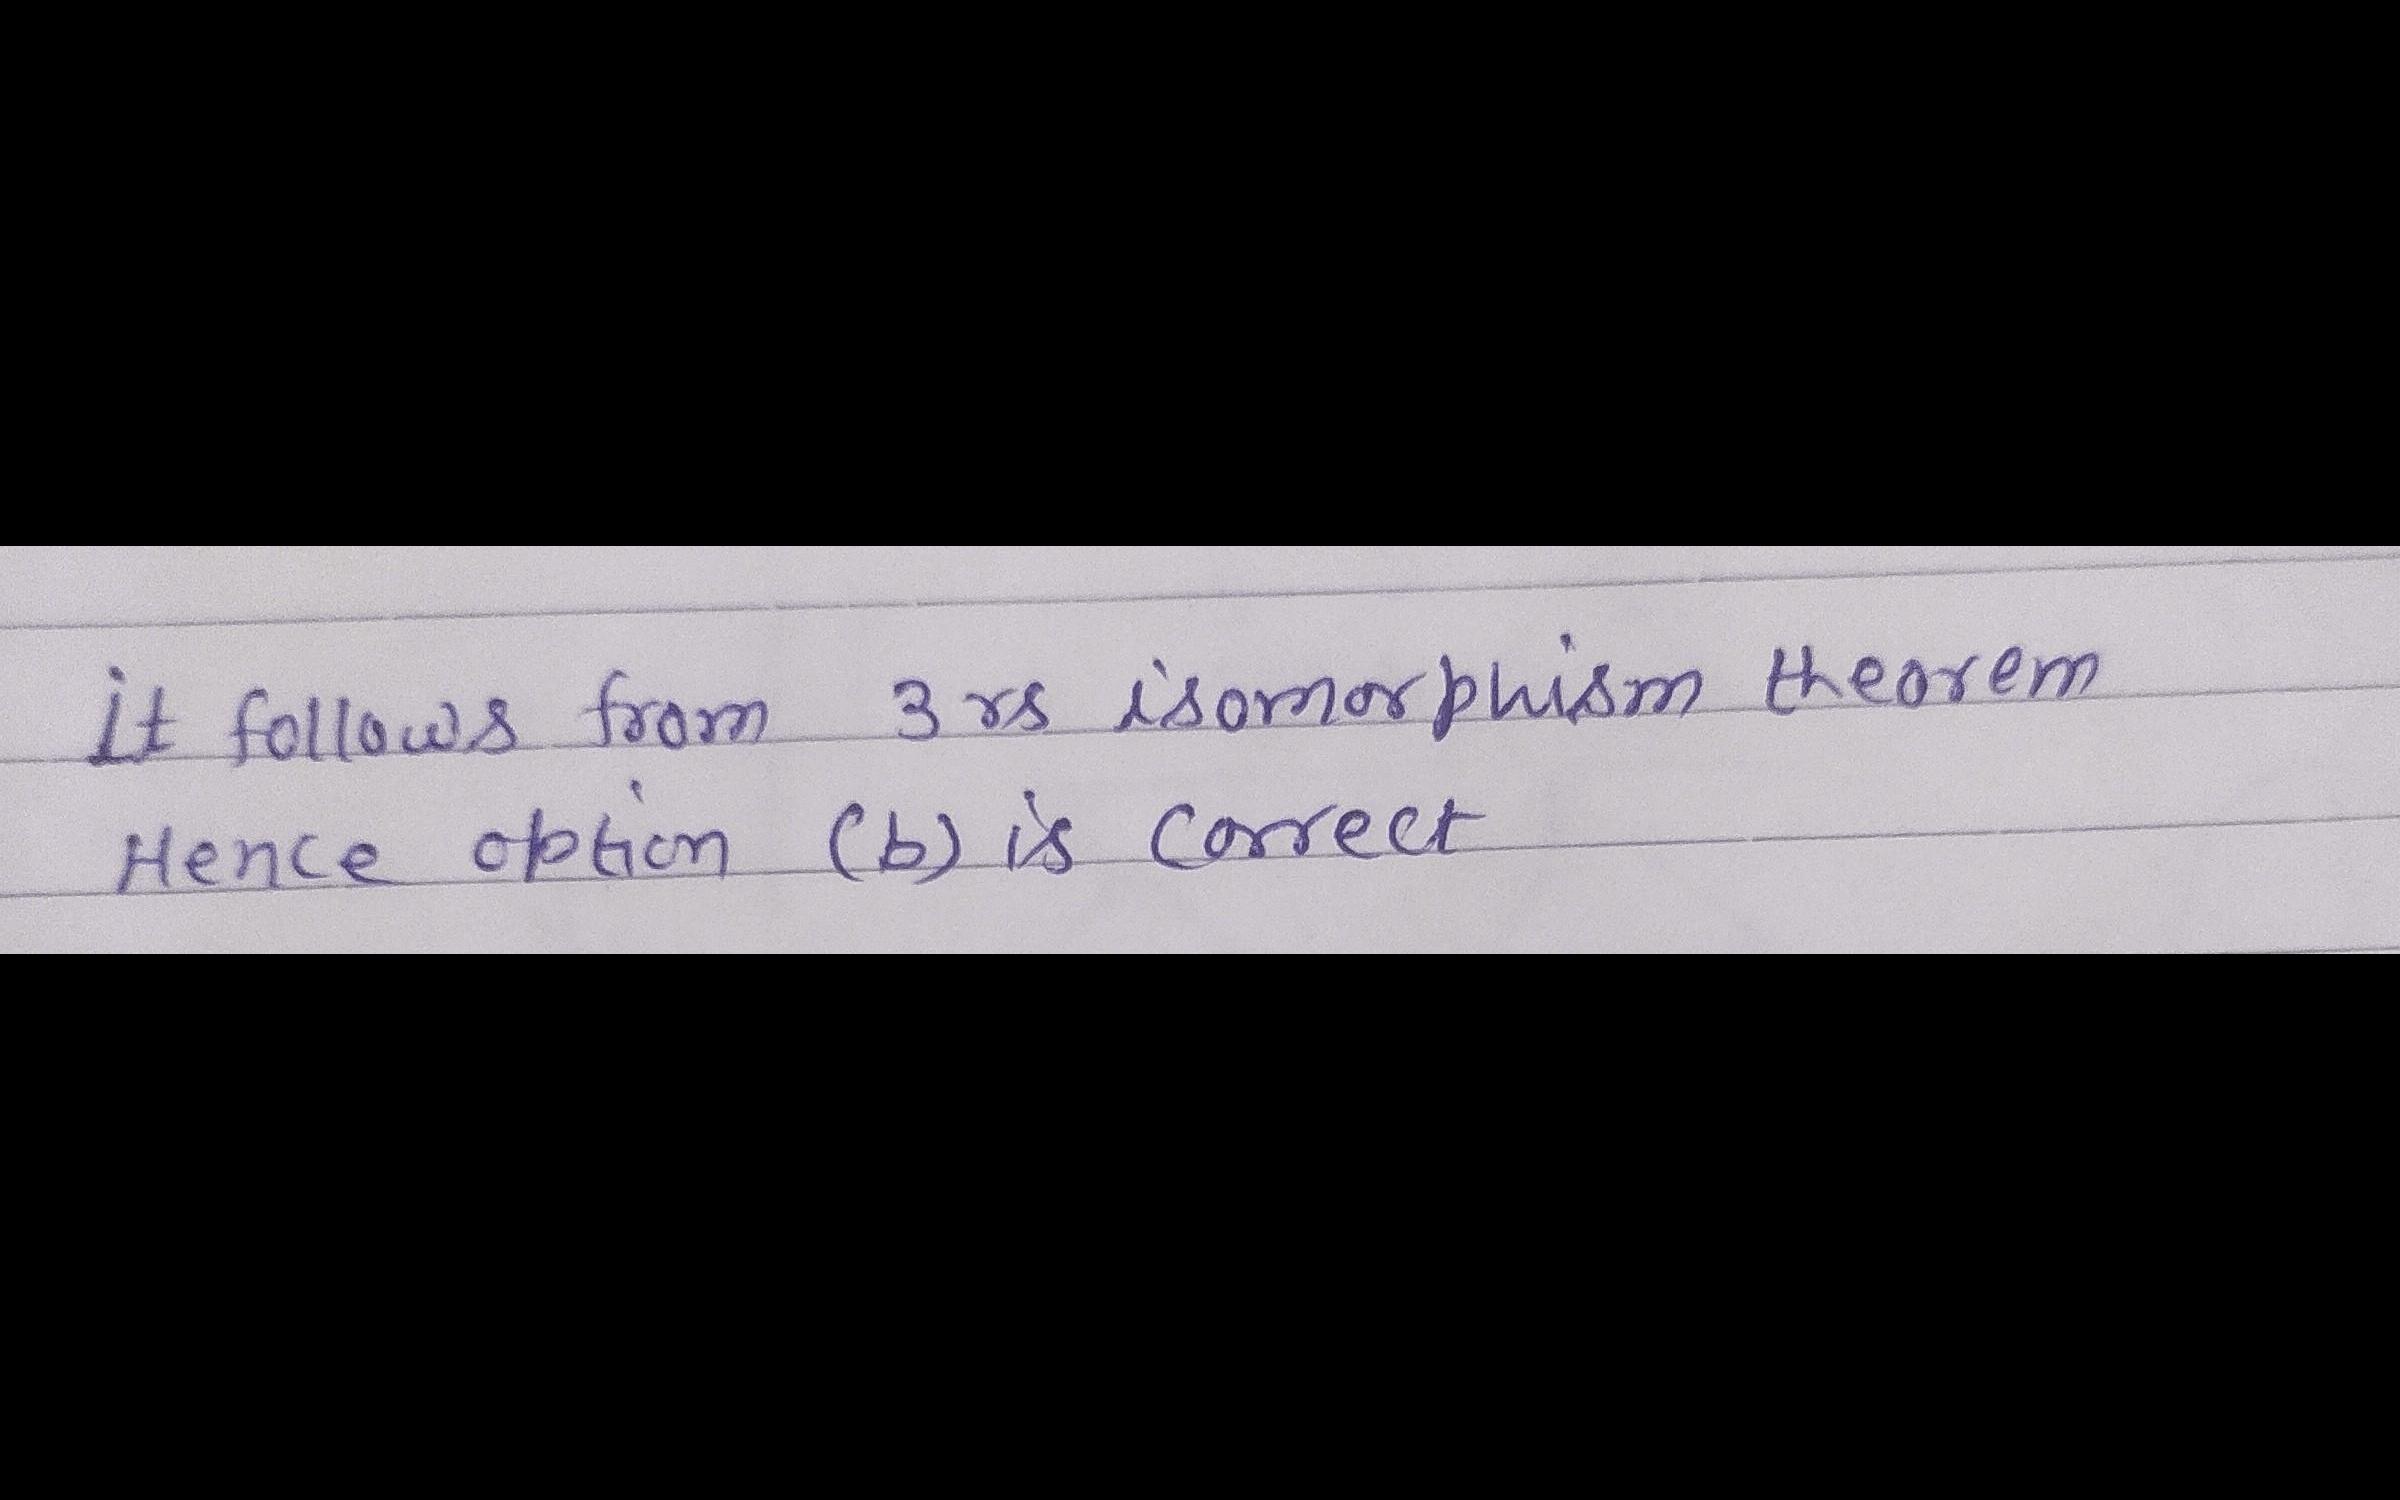 it follows from 3 rs isomorphism theorem
Hence option (b) is correct